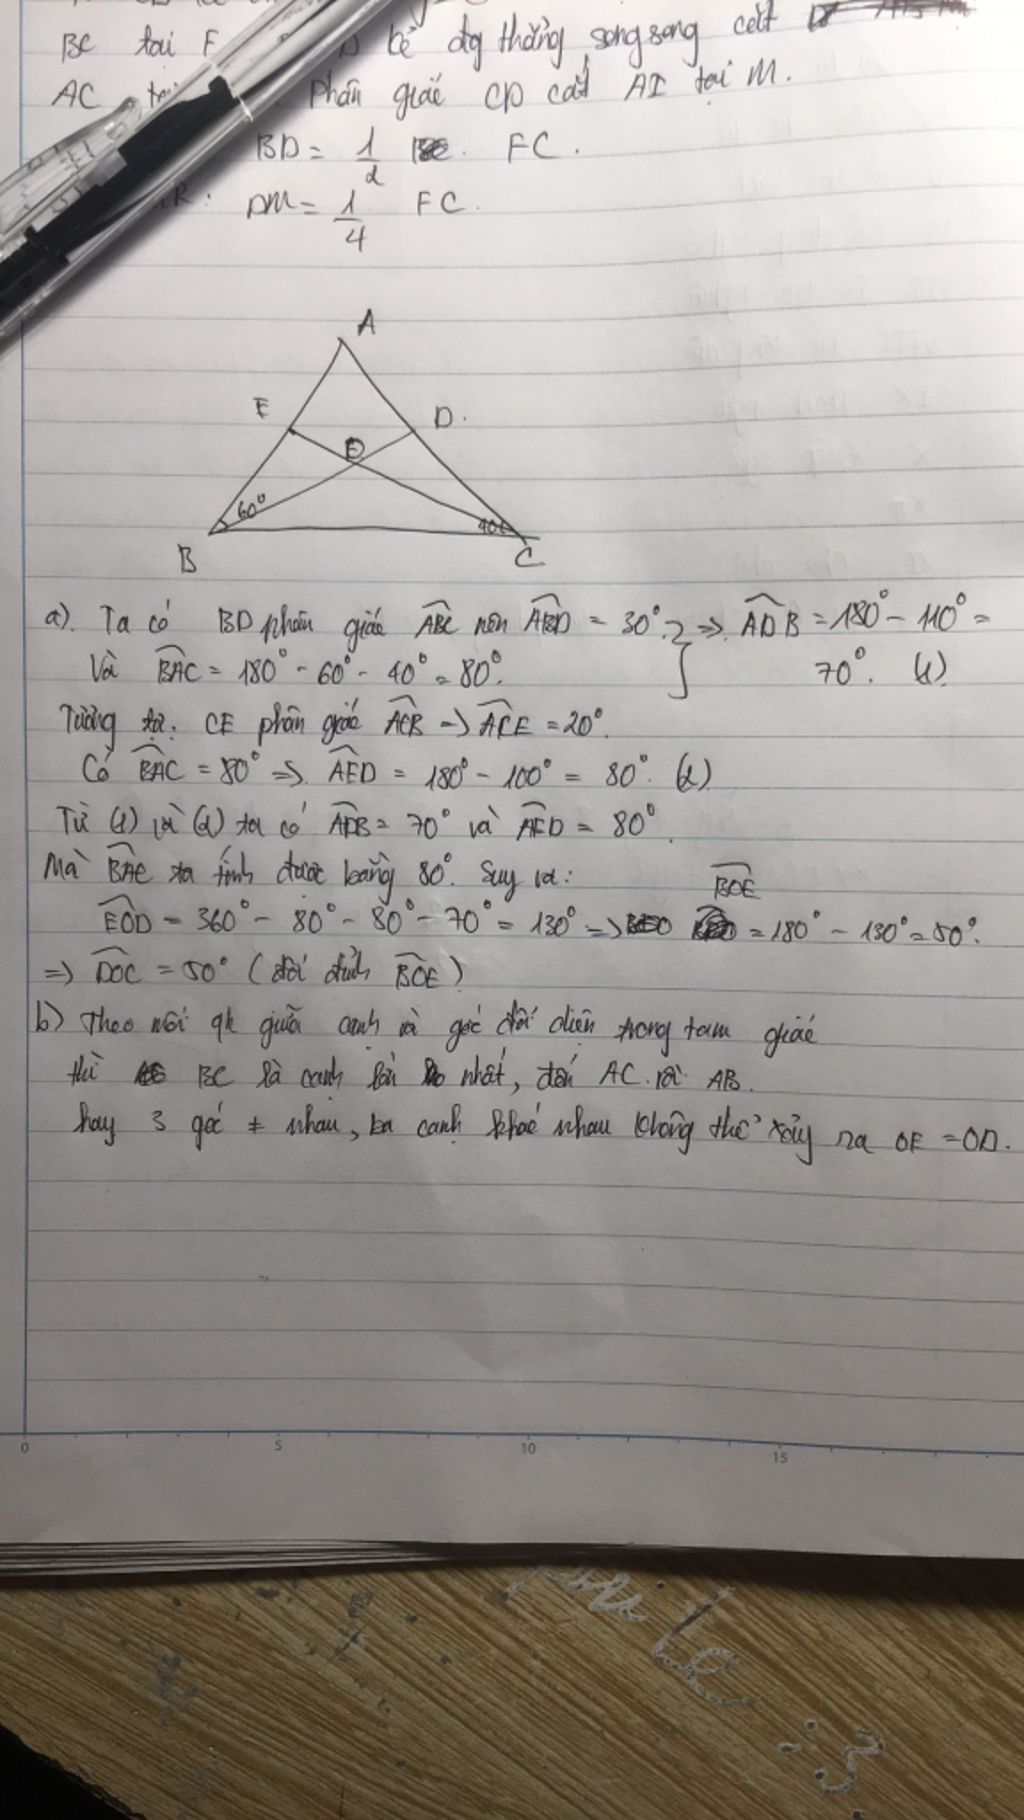 BC tại F kẻ đg thẳng song song cắt
AC phân giác CD cắt AI tại M.
BD = 1/2 FC.
DM = 1/4 FC.
A
E
D.
O
60°
40°
B
C
a). Ta có BD phân giác ABC nên ABD = 30°. } => ADB = 180° - 110° =
Và BAC = 180° - 60° - 40° = 80°. 70°. (1).
Tương tự. CE phân giác ACB => ACE = 20°.
Có BAC = 80° => AED = 180° - 100° = 80°. (2)
Từ (1) và (2) ta có ADB = 70° và AED = 80°.
Mà BAC ta tính được bằng 80°. Suy ra:
BOE
EOD = 360° - 80° - 80° - 70° = 130° => = 180° - 130° = 50°.
=> DOC = 50° (đối đỉnh BOE)
b) Theo mối qh giữa cạnh và góc đối diện trong tam giác
thì BC là cạnh lớn nhất, đến AC rồi AB.
hay 3 góc ≠ nhau, ba cạnh khác nhau không thể xảy ra OE = OD.
0
5
10
15
:3